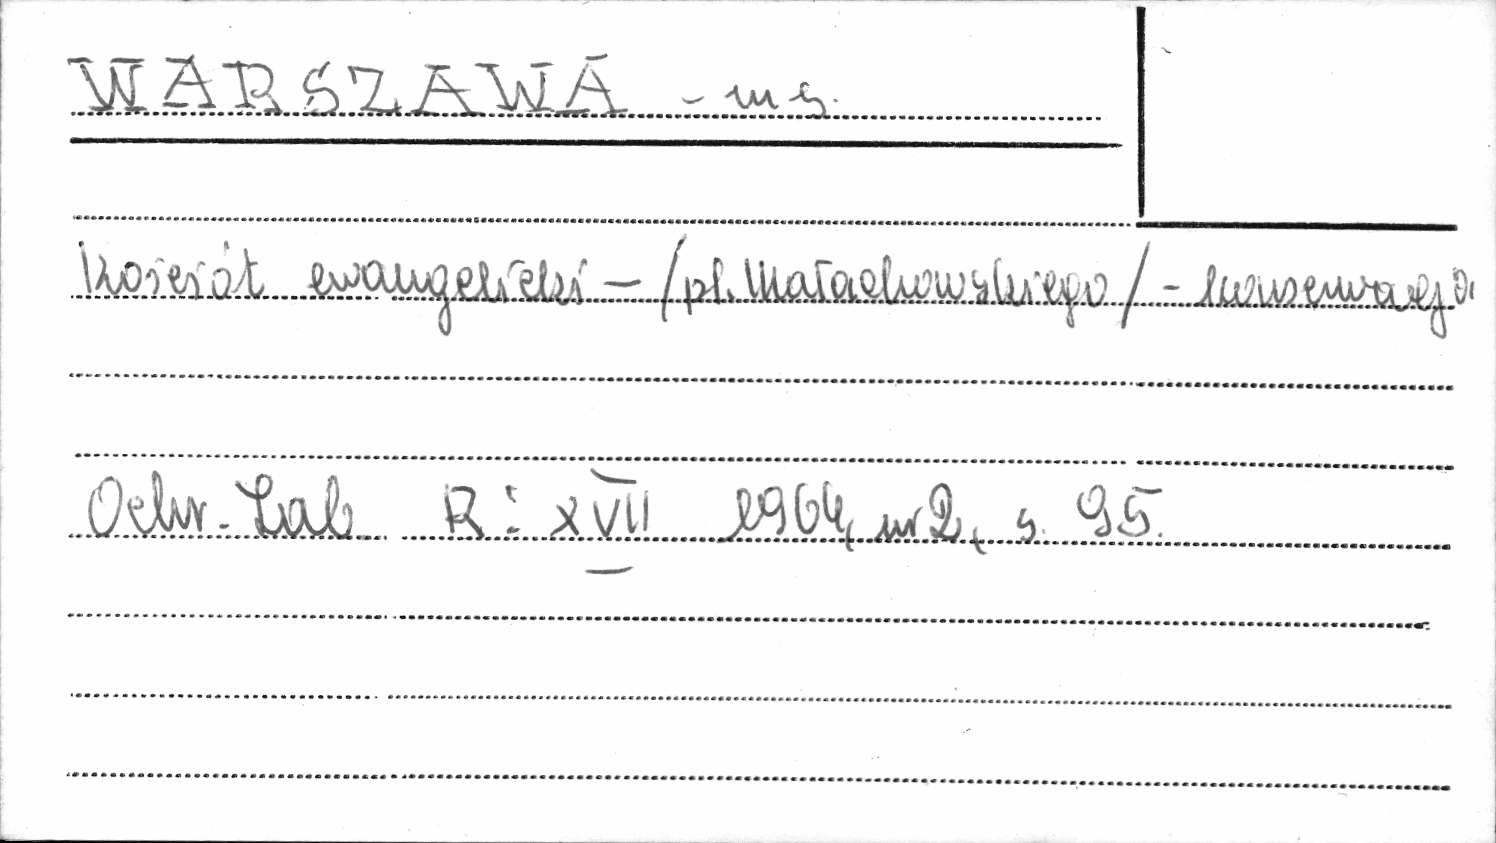 WARSZAWA - m s.
Kościół ewangelicki - /pl. Małachowskiego/ - konserwacja
Ochr. Zab. R: XVII 1964, nr 2, s. 95.